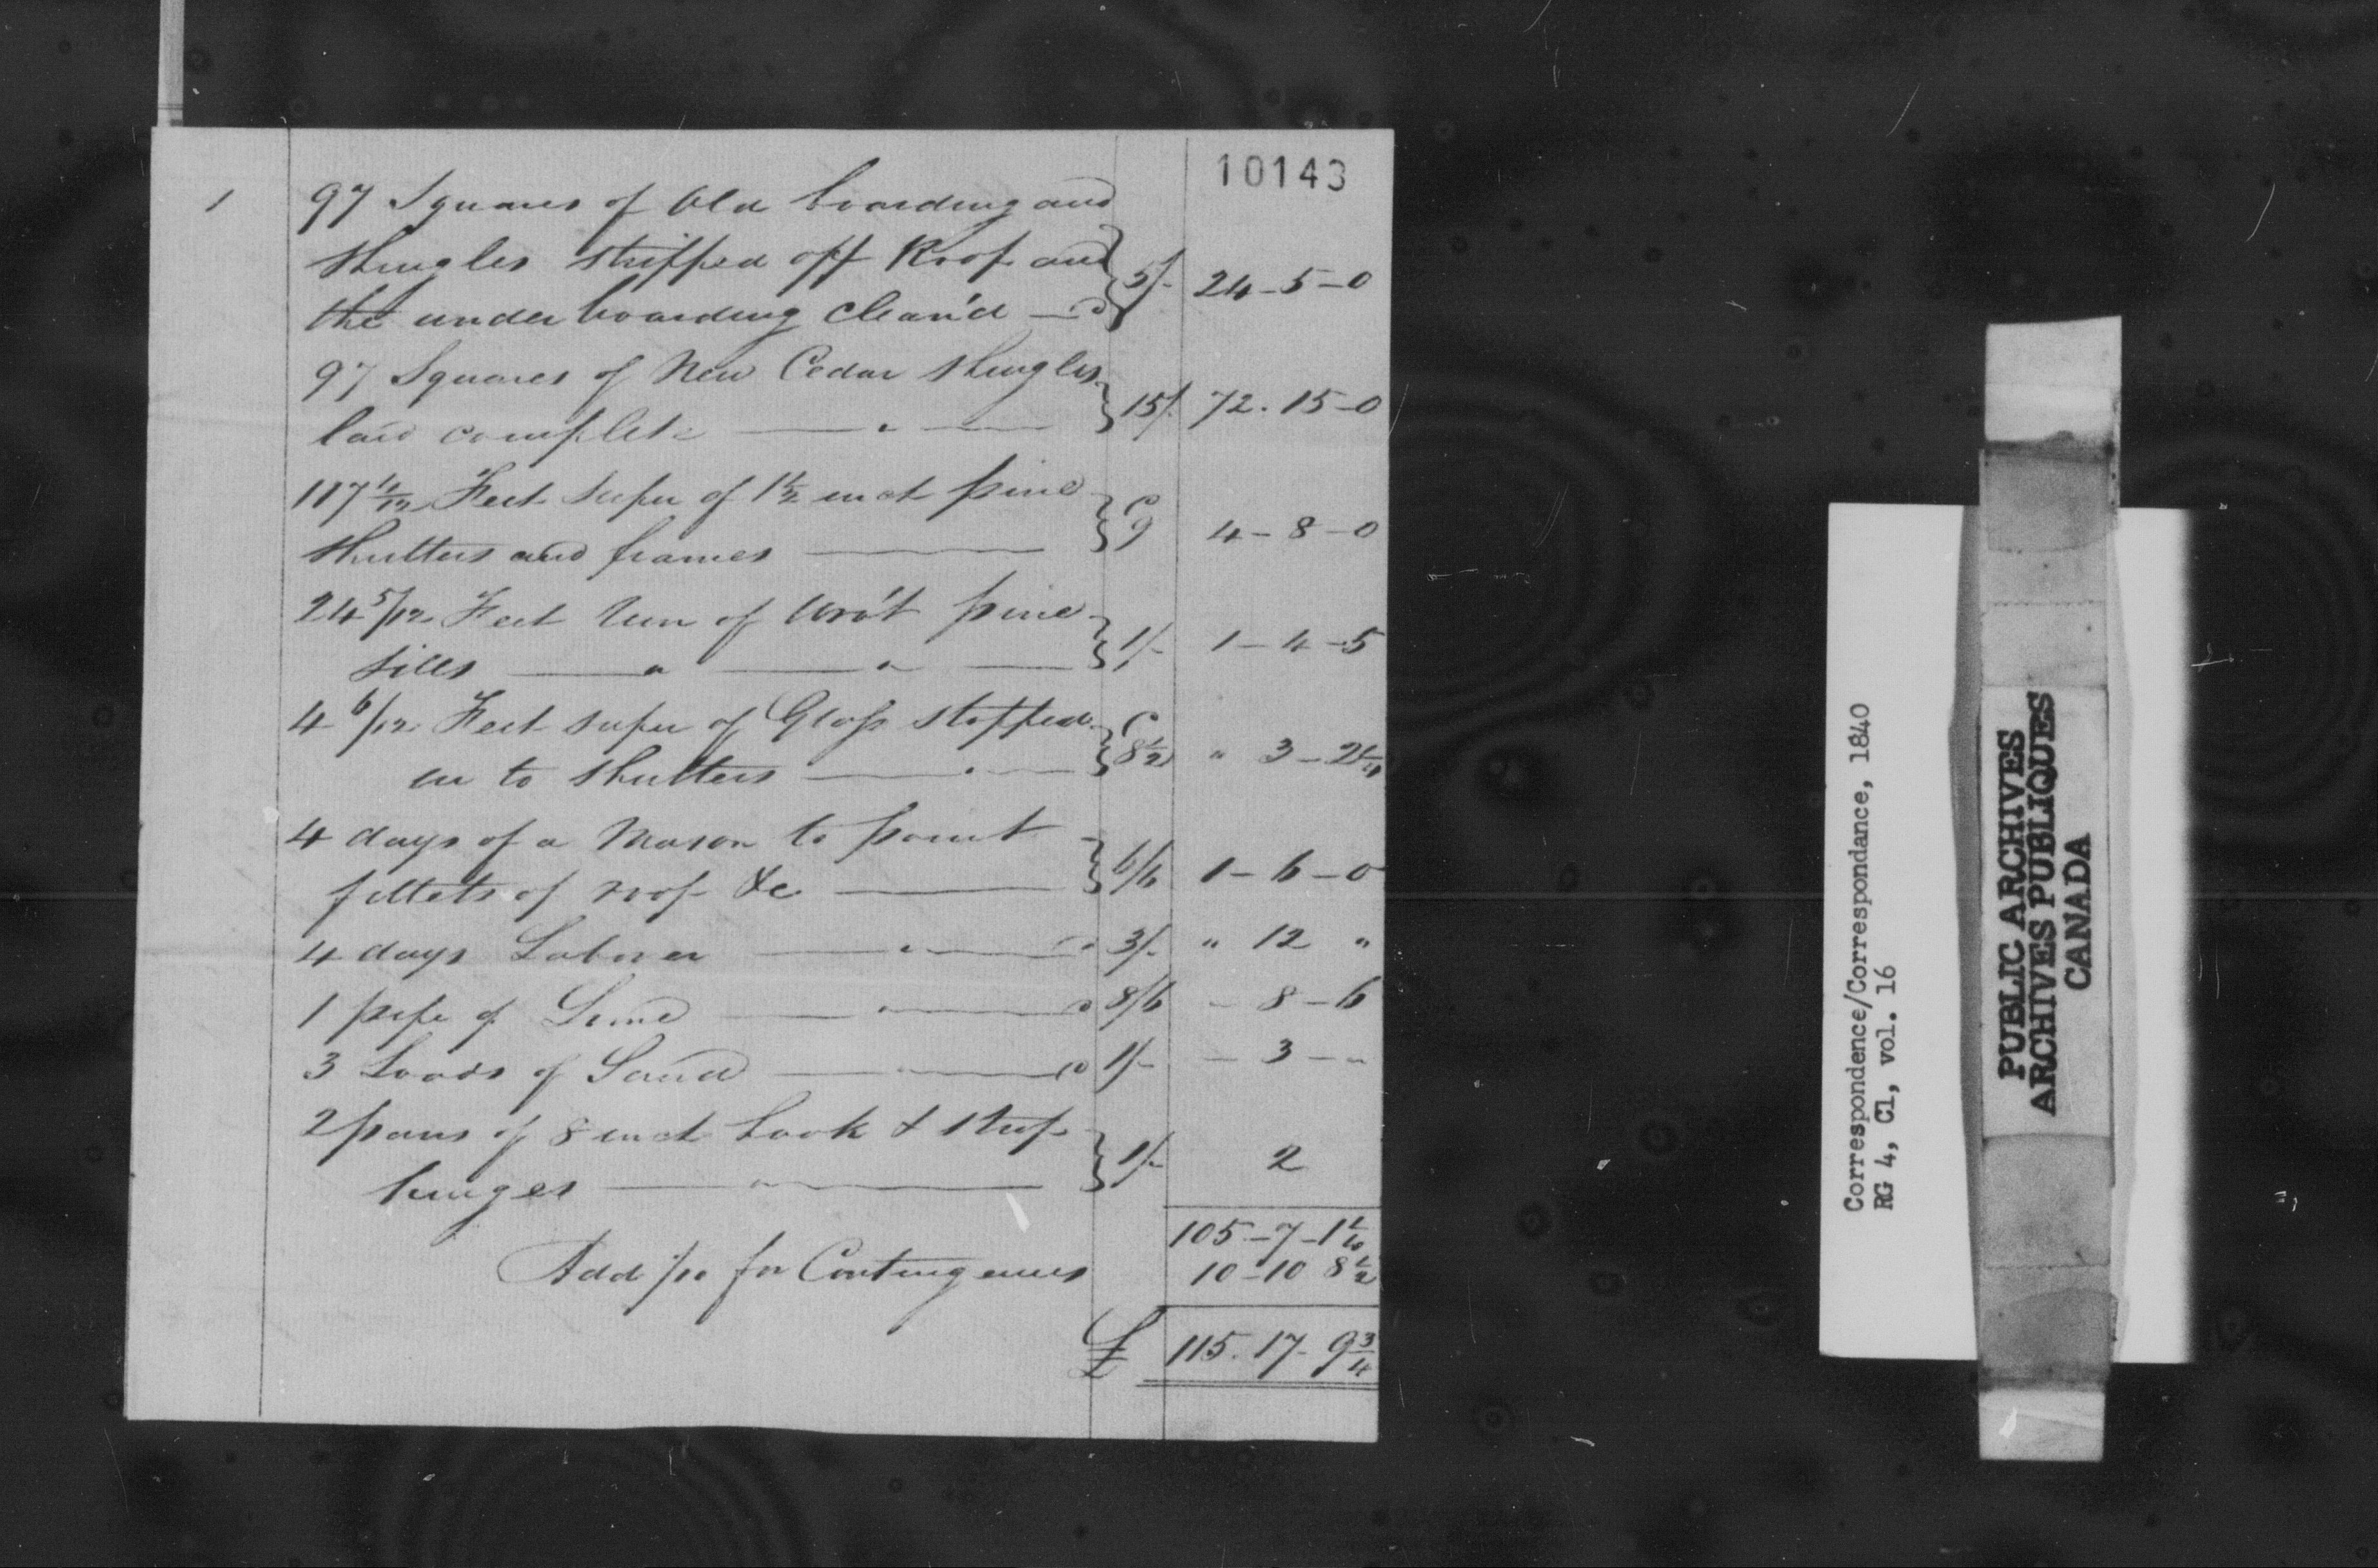 10143
1 97 Squares of Old boarding and
shingles stripped off Roof and
the under boarding clean'd — @ } 5/- 24-5-0
97 Squares of New Cedar shingles
laid complete — " — } 15/- 72.15-0
117 4/12 Feet super of 1½ inch pine
shutters and frames — } 9 4-8-0
24 5/12 Feet run of Wro't pine
sills — " — " — } 1/- 1-4-5
4 6/12 Feet super of Glass stopped
in to shutters — " — } 8½ " 3-2¼
4 days of a Mason to point
fillets of roof &c — } 6/6 1-6-0
4 days Laborer — " — @ 3/- " 12 "
1 pipe of Lime — " — @ 8/6 - 8-6
3 Loads of Sand — " — @ 1/- - 3 - "
2 pairs of 8 inch hook & strap
hinges — " — } 1/- 2
105-7-1¼
Add 1/10 for Contingencies 10-10 8½
£ 115.17-9¾
Correspondence/Correspondance, 1840
RG 4, C1, vol. 16
PUBLIC ARCHIVES
ARCHIVES PUBLIQUES
CANADA